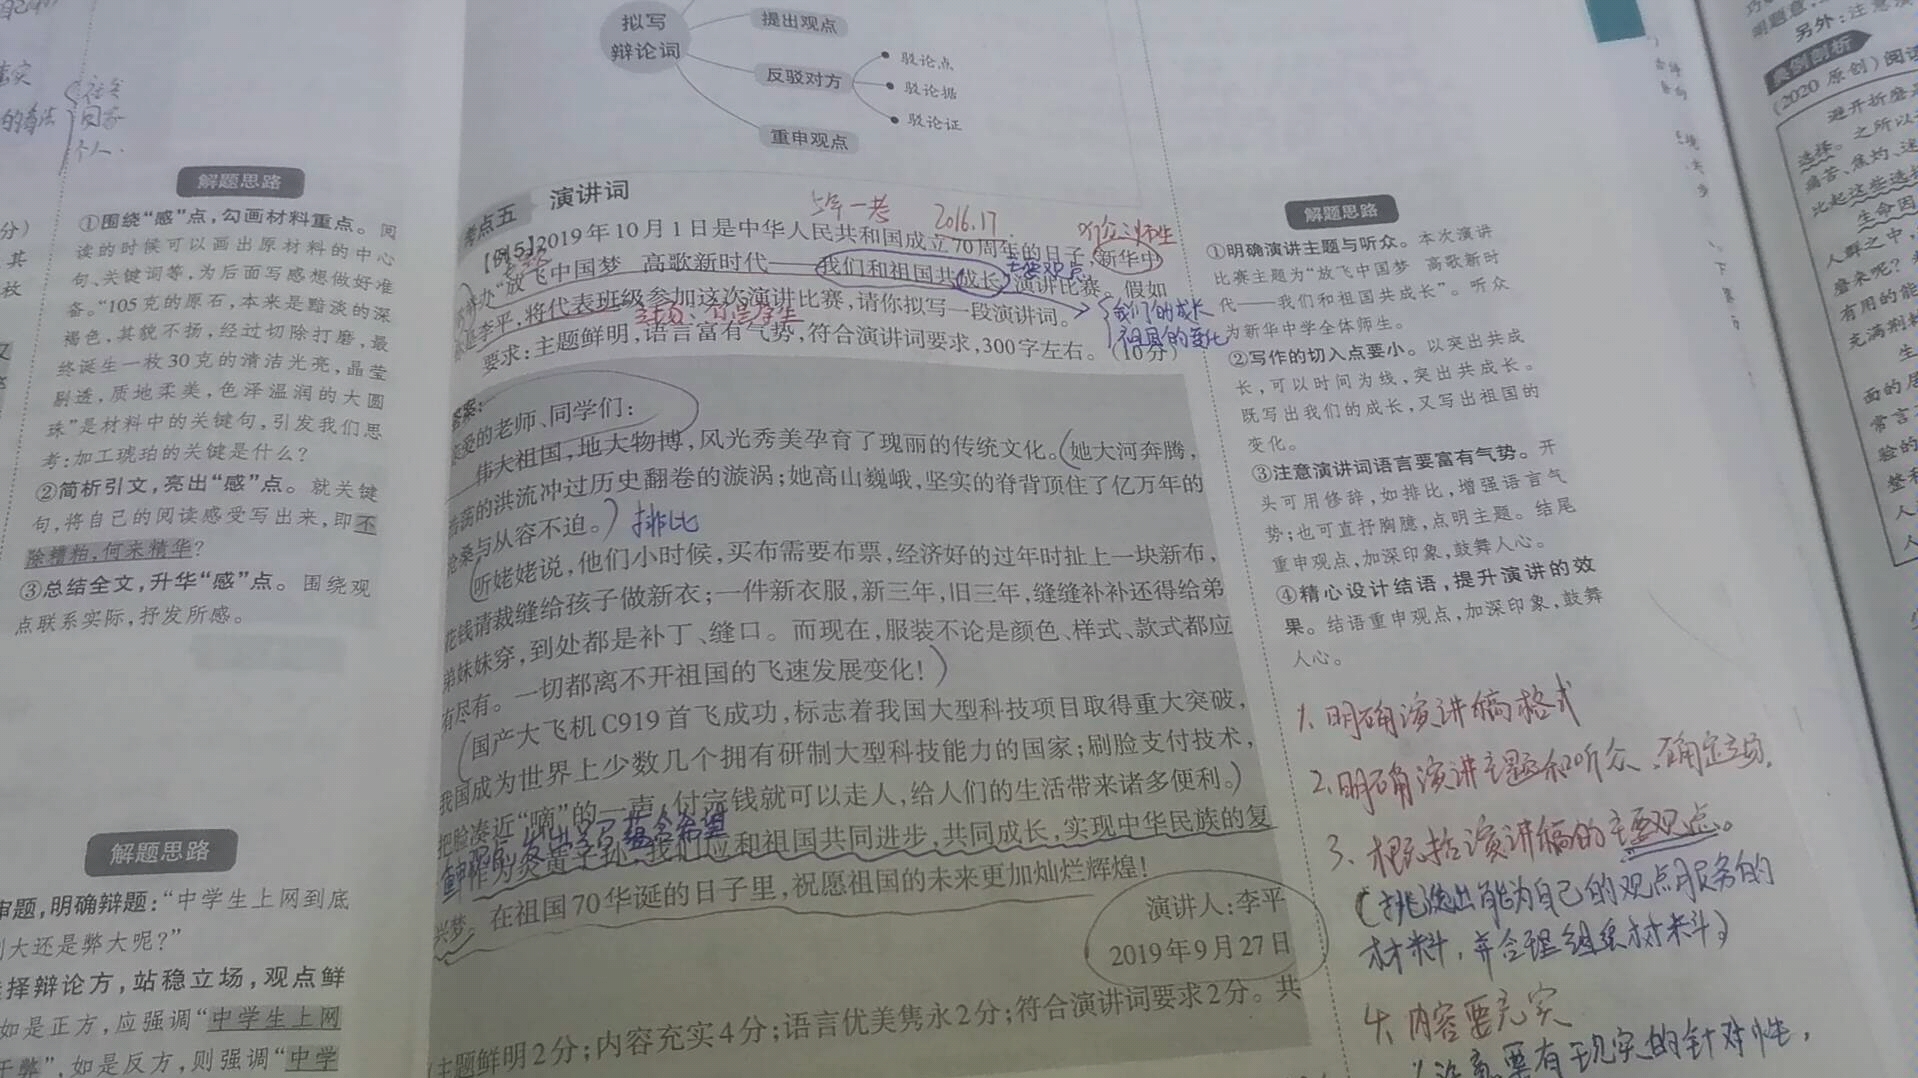 拟写
辩论词
提出观点
反驳对方
驳论点
驳论据
驳论证
重申观点
社会
国家
个人.
的看法
解题思路
①围绕“感”点,勾画材料重点。阅
读的时候可以画出原材料的中心
句、关键词等,为后面写感想做好准
备。“105克的原石,本来是黯淡的深
褐色,其貌不扬,经过切除打磨,最
终诞生一枚30克的清洁光亮,晶莹
剔透,质地柔美,色泽温润的大圆
珠”是材料中的关键句,引发我们思
考:加工琥珀的关键是什么?
②简析引文,亮出“感”点。就关键
句,将自己的阅读感受写出来,即不
除糟粕,何来精华?
③总结全文,升华“感”点。围绕观
点联系实际,抒发所感。
解题思路
审题,明确辩题:“中学生上网到底
大还是弊大呢?”
择辩论方,站稳立场,观点鲜
如是正方,应强调“中学生上网
于弊”,如是反方,则强调“中学
考点五 演讲词
5年一考 2016.17.
听众:师生
【例5】2019年10月1日是中华人民共和国成立70周年的日子,新华中
举办“放飞中国梦 高歌新时代——我们和祖国共成长”演讲比赛。假如
主要观点
你是李平,将代表班级参加这次演讲比赛,请你拟写一段演讲词。
我们的成长
祖国的变化
要求:主题鲜明,语言富有气势,符合演讲词要求,300字左右。(10分)
答案:
亲爱的老师、同学们:
伟大祖国,地大物博,风光秀美孕育了瑰丽的传统文化。她大河奔腾,
浩荡的洪流冲过历史翻卷的漩涡;她高山巍峨,坚实的脊背顶住了亿万年的
沧桑与从容不迫。 排比
听姥姥说,他们小时候,买布需要布票,经济好的过年时扯上一块新布,
花钱请裁缝给孩子做新衣;一件新衣服,新三年,旧三年,缝缝补补还得给弟
弟妹妹穿,到处都是补丁、缝口。而现在,服装不论是颜色、样式、款式都应
有尽有。一切都离不开祖国的飞速发展变化!
国产大飞机C919首飞成功,标志着我国大型科技项目取得重大突破,
我国成为世界上少数几个拥有研制大型科技能力的国家;刷脸支付技术,
把脸凑近“嘀”的一声,付完钱就可以走人,给人们的生活带来诸多便利。
作为炎黄子孙,我们应和祖国共同进步,共同成长,实现中华民族的复
兴梦。在祖国70华诞的日子里,祝愿祖国的未来更加灿烂辉煌!
演讲人:李平
2019年9月27日
(主题鲜明2分;内容充实4分;语言优美隽永2分;符合演讲词要求2分。共
解题思路
①明确演讲主题与听众。本次演讲
比赛主题为“放飞中国梦 高歌新时
代——我们和祖国共成长”。听众
为新华中学全体师生。
②写作的切入点要小。以突出共成
长,可以时间为线,突出共成长。
既写出我们的成长,又写出祖国的
变化。
③注意演讲词语言要富有气势。开
头可用修辞,如排比,增强语言气
势;也可直抒胸臆,点明主题。结尾
重申观点,加深印象,鼓舞人心。
④精心设计结语,提升演讲的效
果。结语重申观点,加深印象,鼓舞
人心。
1、明确演讲稿格式
2、明确演讲主题和听众、确定立场.
3、概括演讲稿的主要观点。
(挑选出能为自己的观点服务的
材料,并合理组织材料)
4、内容要充实
要有现实的针对性,
另外:注意
典例剖析
(2020原创)阅读
避开折磨
选择。之所以
痛苦、焦灼、迷
比起这些选择
生命因
人群之中,
磨来呢?
有用的能
充满荆
面的
常言
验的